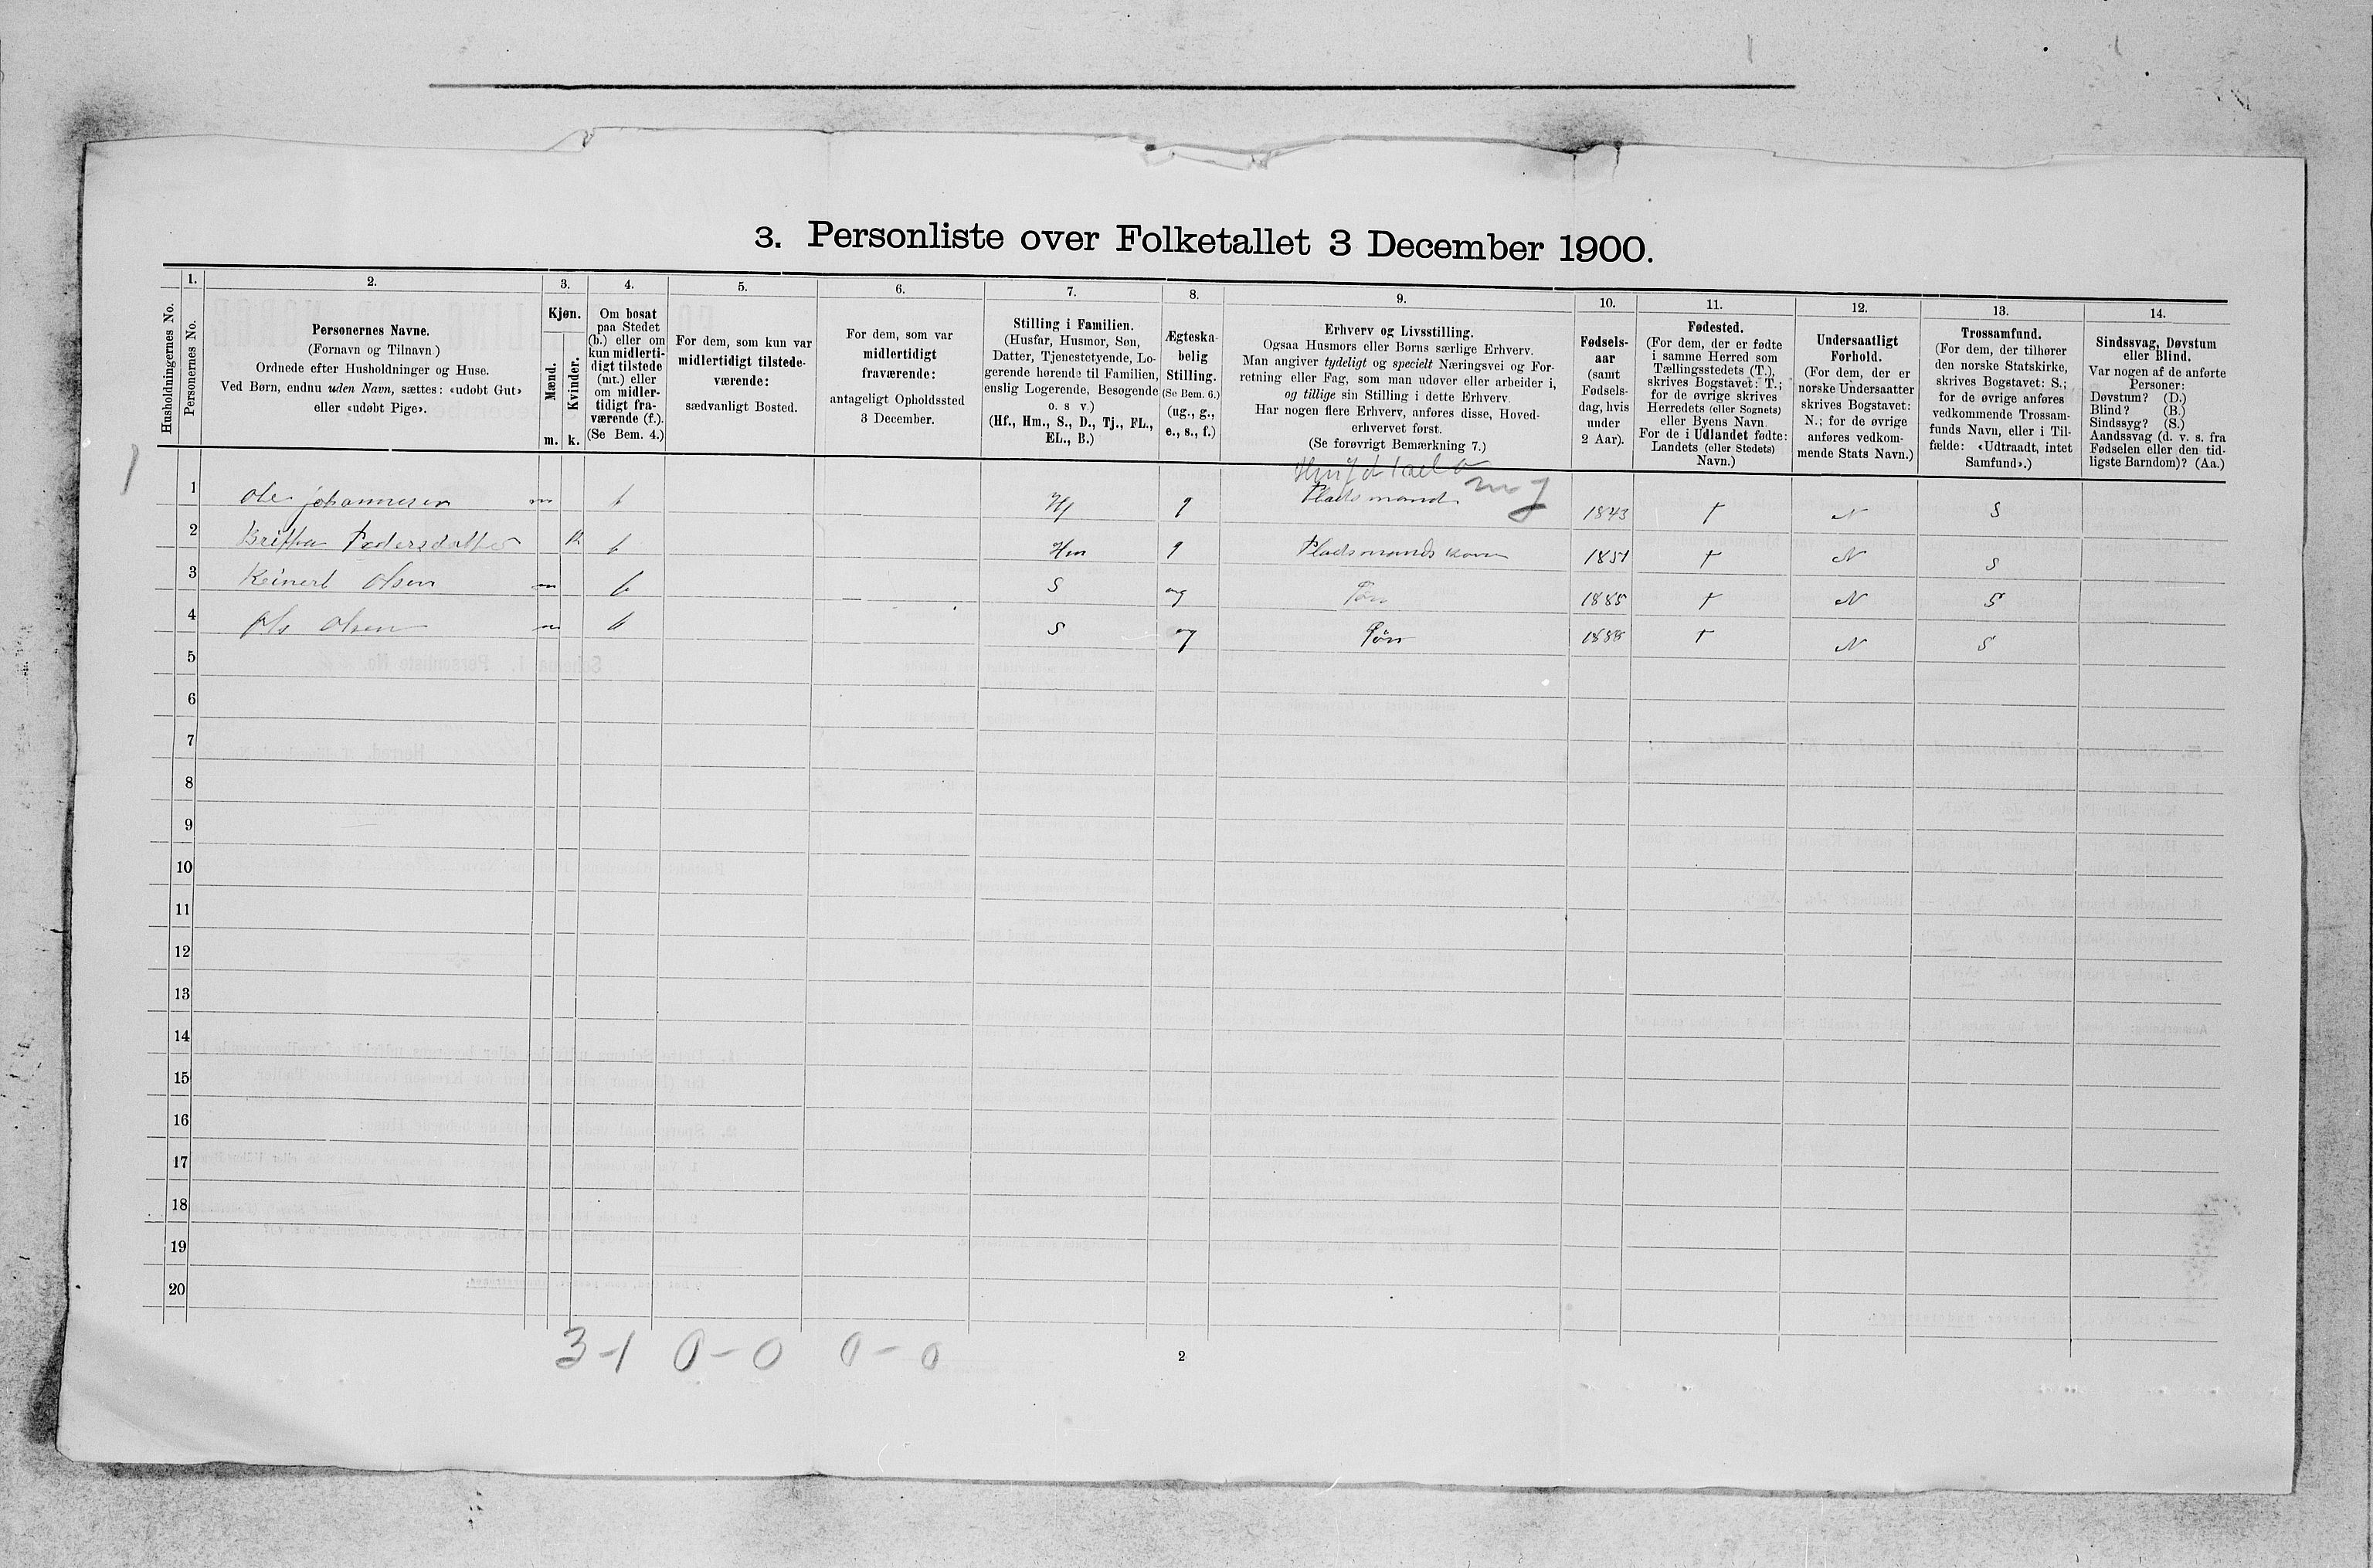 3. Personliste over Folketallet 3 December 1900.
Husholdningernes No.
1.
Personernes No.
2.
Personernes Navne.
(Fornavn og Tilnavn)
Ordnede efter Husholdninger og Huse.
Ved Børn, endnu uden Navn, sættes: «udøbt Gut»
eller «udøbt Pige».
3.
Kjøn.
Mænd.
Kvinder.
m. k.
4.
Om bosat
paa Stedet
(b.) eller om
kun midlerti-
digt tilstede
(mt.) eller
om midler-
tidigt fra-
værende (f.).
(Se Bem. 4.)
5.
For dem, som kun var
midlertidigt tilstede-
værende:
sædvanligt Bosted.
6.
For dem, som var
midlertidigt
fraværende:
antageligt Opholdssted
3 December.
7.
Stilling i Familien.
(Husfar, Husmor, Søn,
Datter, Tjenestetyende, Lo-
gerende hørende til Familien,
enslig Logerende, Besøgende
o. s v.)
(Hf., Hm., S., D., Tj., FL.,
EL., B.)
8.
Ægteska-
belig
Stilling.
(Se Bem. 6.)
(ug., g.,
e., s., f.)
9.
Erhverv og Livsstilling.
Ogsaa Husmors eller Børns særlige Erhverv.
Man angiver tydeligt og specielt Næringsvei og For-
retning eller Fag, som man udøver eller arbeider i,
og tillige sin Stilling i dette Erhverv.
Har nogen flere Erhverv, anføres disse, Hoved-
erhvervet først.
(Se forøvrigt Bemærkning 7.)
10.
Fødsels-
aar
(samt
Fødsels-
dag, hvis
under
2 Aar).
11.
Fødested.
(For dem, der er fødte
i samme Herred som
Tællingsstedets (T.),
skrives Bogstavet: T.;
for de øvrige skrives
Herredets (eller Sognets)
eller Byens Navn.
For de i Udlandet fødte:
Landets (eller Stedets)
Navn.)
12.
Undersaatligt
Forhold.
(For dem, der er
norske Undersaatter
skrives Bogstavet:
N.; for de øvrige
anføres vedkom-
mende Stats Navn.)
13.
Trossamfund.
(For dem, der tilhører
den norske Statskirke,
skrives Bogstavet: S.;
for de øvrige anføres
vedkommende Trossam-
funds Navn, eller i Til-
fælde: «Udtraadt, intet
Samfund».)
14.
Sindssvag, Døvstum
eller Blind.
Var nogen af de anførte
Personer:
Døvstum? (D.)
Blind? (B.)
Sindssyg? (S.)
Aandssvag (d. v. s. fra
Fødselen eller den tid-
ligste Barndom)? (Aa.)
1 1 Ole Johannesen m b Hf g Pladsmand 1843 T N S
2 Britha Pedersdatter k b Hm g Pladsmands kone 1851 T N S
3 Reinert Olsen m b S ug Søn 1885 T N S
4 Ole Olsen m b S ug Søn 1888 T N S
5
6
7
8
9
10
11
12
13
14
15
16
17
18
19
20
3-1 0-0 0-0
2